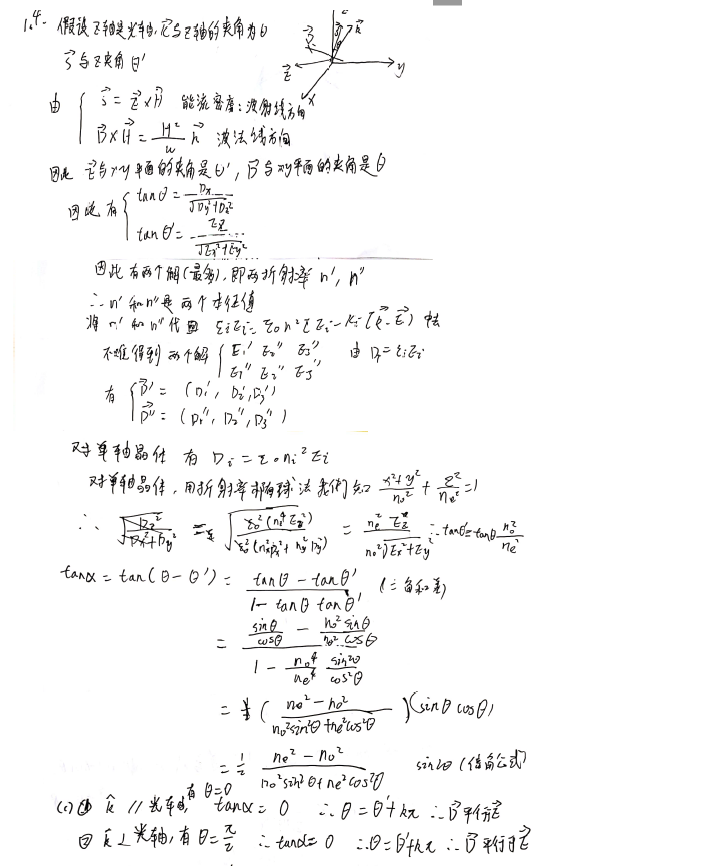 1.4. 假设z轴是光轴,k⃗与z轴的夹角为θ
s⃗与z夹角θ'
z
y
x
由 { s⃗ = E⃗×H⃗ 能流密度:波射线方向
D⃗×H⃗ = H²/u n⃗ 波法线方向
因此 E⃗与xy平面的夹角是θ', D⃗与xy平面的夹角是θ
因此有 { tanθ = Dz/√(Dy²+Dx²)
tanθ' = Ez/√(Ex²+Ey²)
因此有两个解(最多),即两折射率 n', n"
∴ n'和n"是两个本征值
将 n'和n"代回 εiEi = ε0n²[Ei - Ki(k⃗·E⃗)] 中去
不难得到两个解 { E1' E2' E3' 由 Di = εiEi
E1" E2" E3"
有 { D⃗' = (D1', D2', D3')
D⃗" = (D1", D2", D3")
对单轴晶体 有 Di = ε0ni²Ei
对单轴晶体,用折射率椭球法我们知 (x²+y²)/no² + z²/ne² = 1
∴ √(Dz²/(Dx²+Dy²)) = √(ε0²(ne⁴Ez²)/ε0²(nx⁴Dx²+ny⁴Dy²)) = ne²Ez/no²√(Ex²+Ey²) ∴ tanθ' = tanθ no²/ne²
tanα = tan(θ-θ') = (tanθ - tanθ')/(1- tanθ tanθ') (三角和差)
= (sinθ/cosθ - no²sinθ/ne²cosθ)/(1 - no⁴/ne⁴ sin²θ/cos²θ)
= ((ne²-no²)/(no²sin²θ+ne²cos²θ))(sinθcosθ)
= 1/2 (ne²-no²)/(no²sin²θ+ne²cos²θ) sin2θ (倍角公式)
(c) ① k⃗ // 光轴, 有θ=0 tanα = 0 ∴ θ = θ'+kπ ∴ D⃗平行E⃗
② k⃗⊥光轴,有θ=π/2 ∴ tanα=0 ∴ θ=θ'+kπ ∴ D⃗平行于E⃗